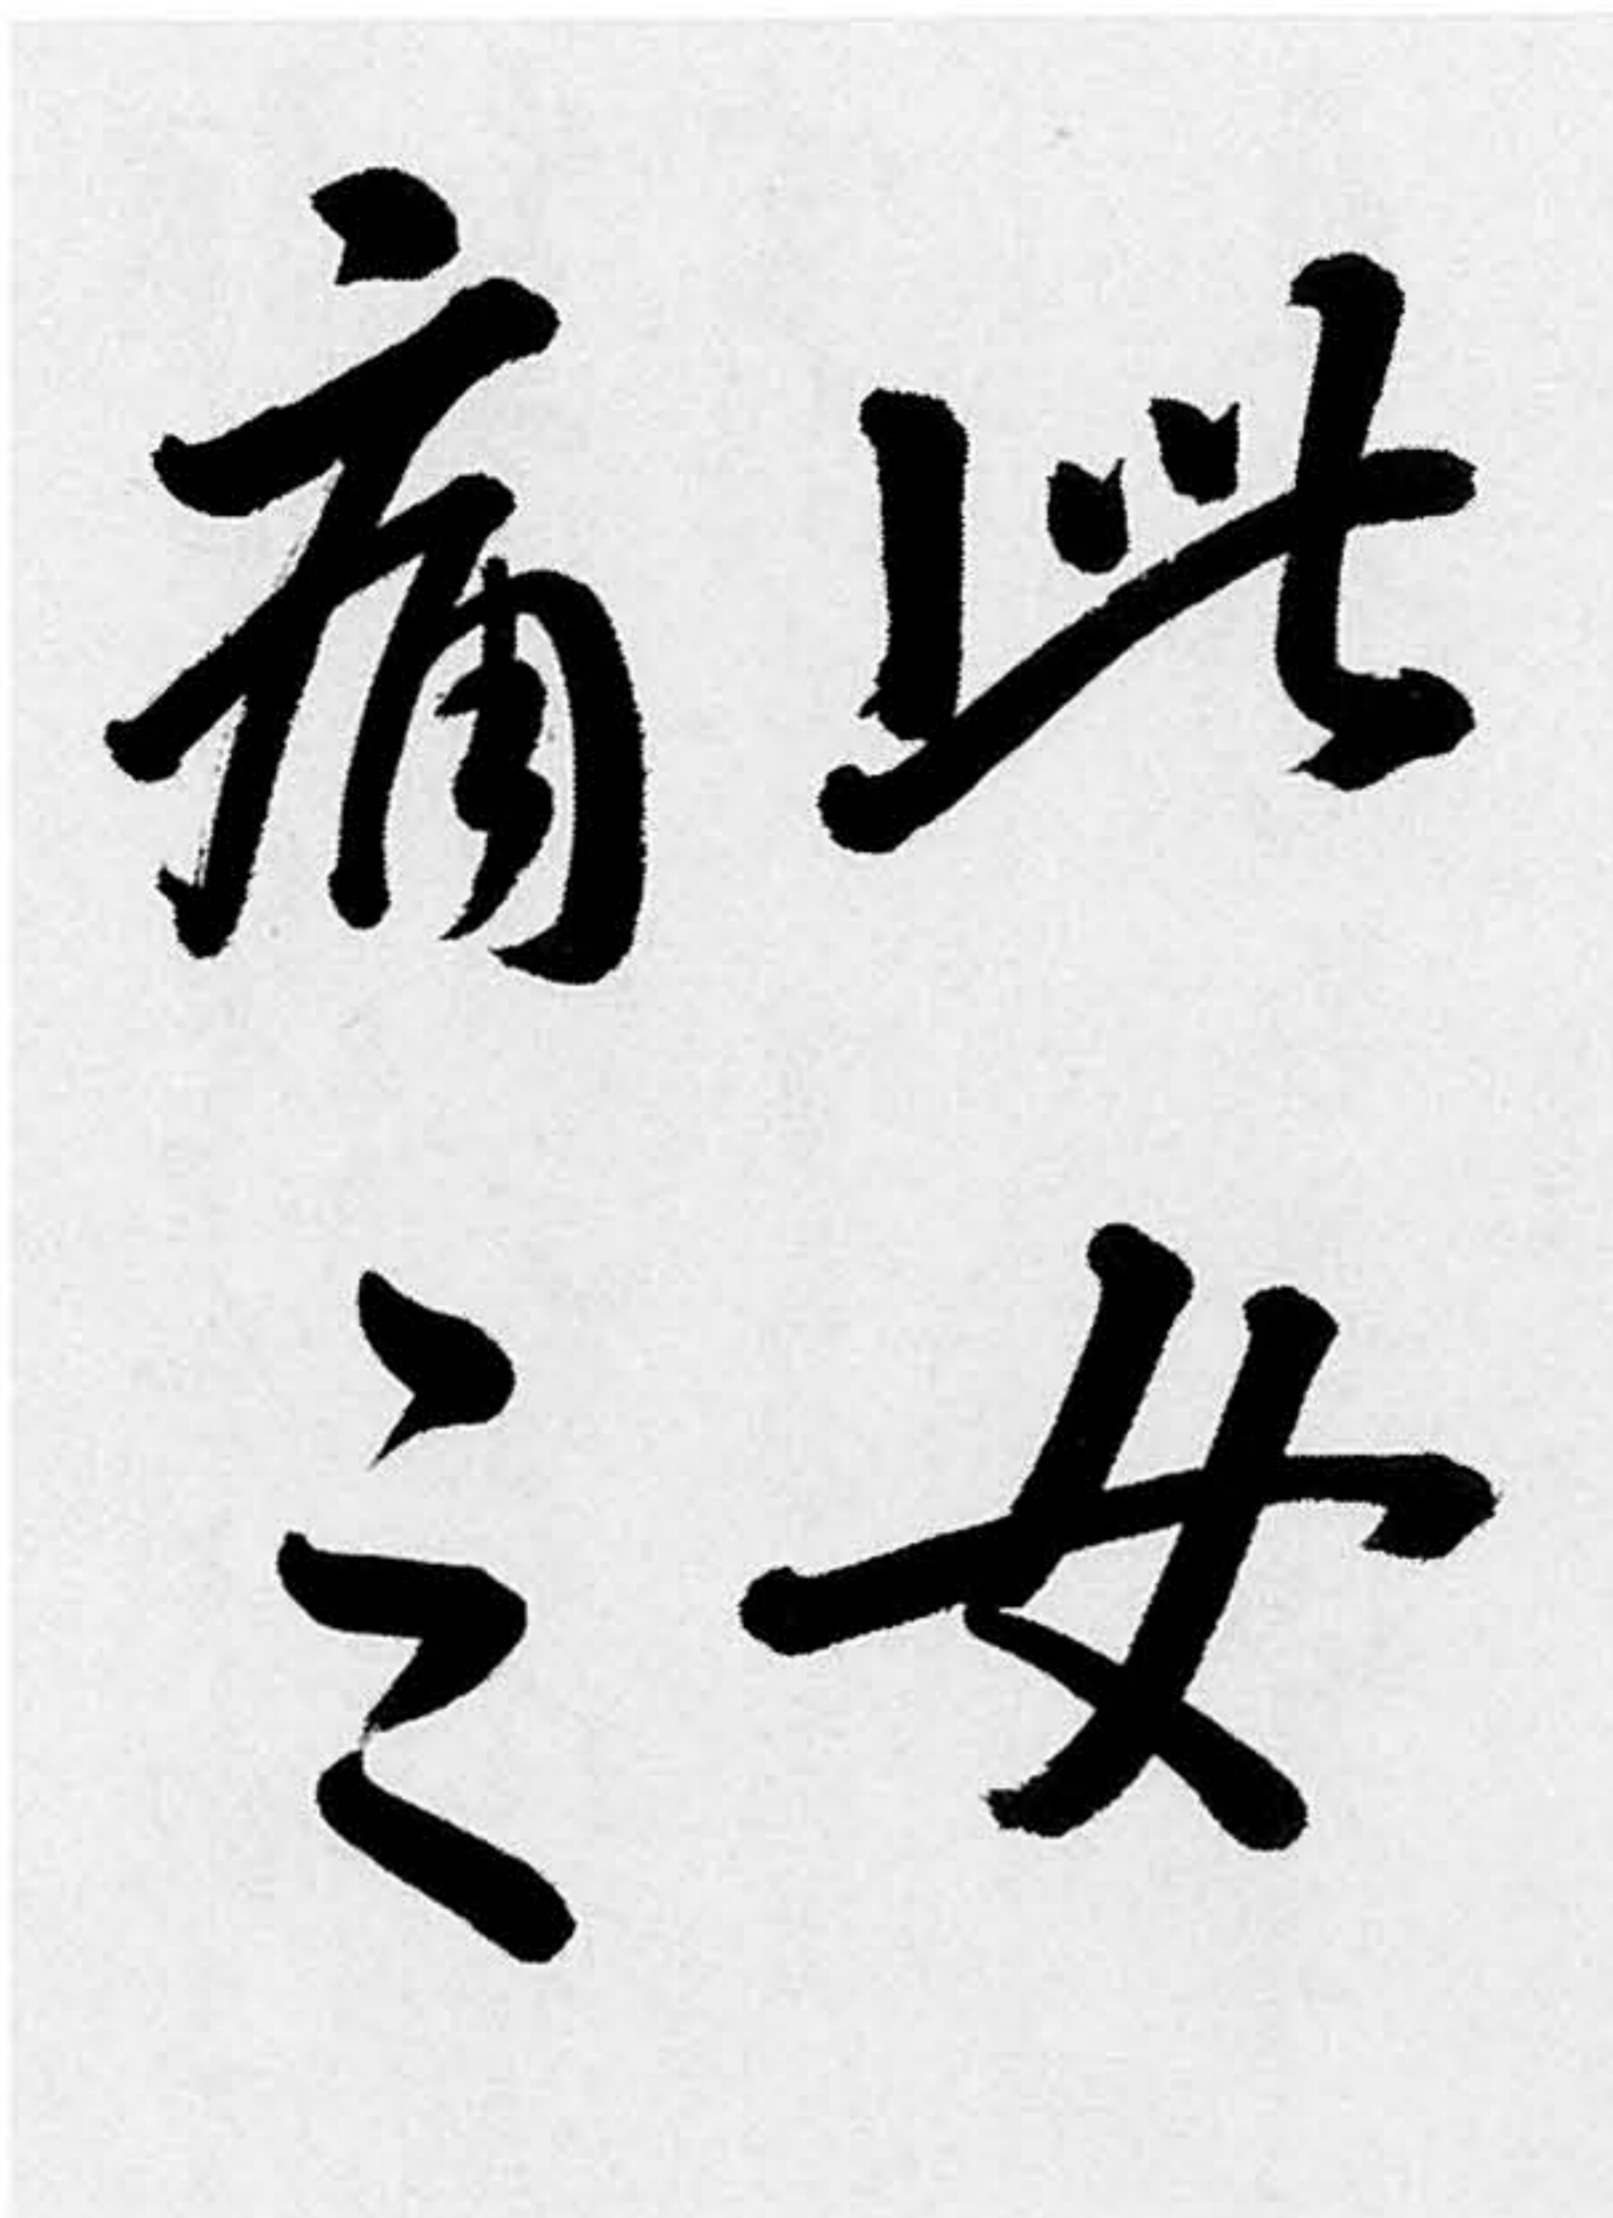 此女
痛之